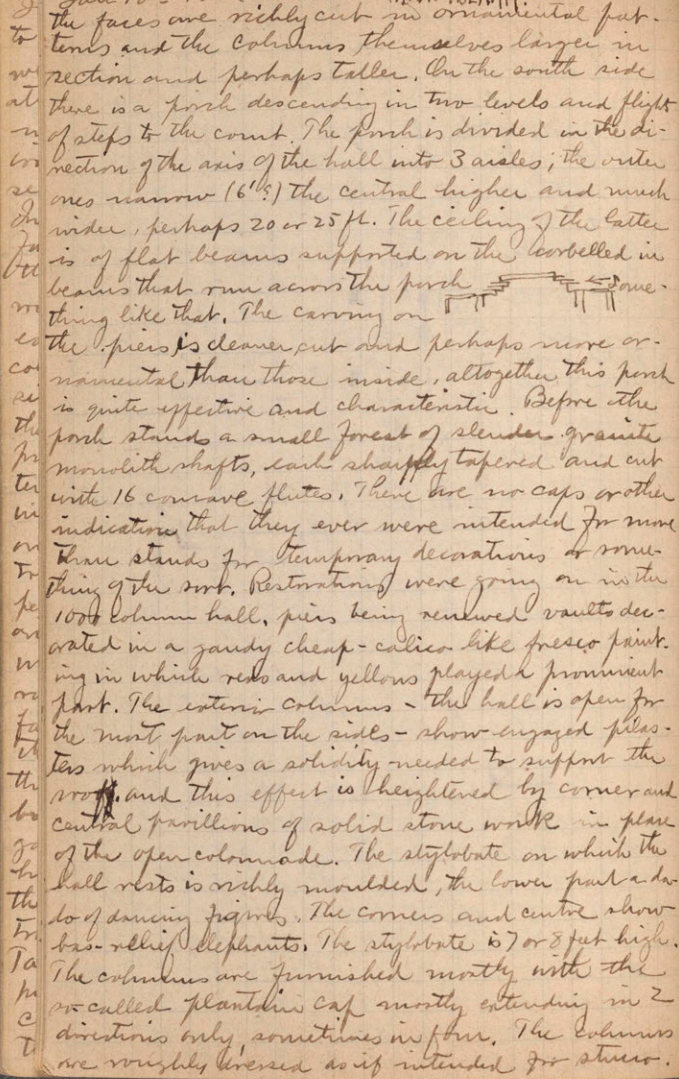 the faces are richly cut in ornamental pat-
terns and the columns themselves larger in
section and perhaps taller. On the south side
there is a porch descending in two levels and flights
of steps to the court. The porch is divided in the di-
rection of the axis of the hall into 3 aisles; the outer
ones narrow (6'?) the central higher and much
wider, perhaps 20 or 25 ft. The ceiling of the latter
is of flat beams supported on the corbelled in
beams that run across the porch ← Some-
thing like that. The carving on
the piers is cleaner cut and perhaps more or-
namental than those inside, altogether this porch
is quite effective and characteristic. Before the
porch stands a small forest of slender granite
monolith shafts, each sharply tapered and cut
with 16 concave flutes. There are no caps or other
indication that they ever were intended for more
than stands for temporary decorations or some-
thing of the sort. Restorations were going on in the
1000 column hall, piers being renewed vaults dec-
orated in a gaudy cheap-calico like fresco paint-
ing in which reds and yellows played a prominent
part. The exterior columns - the hall is open for
the most part on the sides - show engaged pilas-
ters which gives a solidity needed to support the
roof. and this effect is heightened by corner and
central pavillions of solid stone work in place
of the open colonnade. The stylobate on which the
hall rests is richly moulded, the lower part a da-
do of dancing figures. The corners and centre show
bas-relief elephants. The stylobate is 7 or 8 feet high.
The columns are furnished mostly with the
so-called plantain cap mostly extending in 2
directions only, sometimes in four. The columns
are roughly dressed as if intended for stucco.